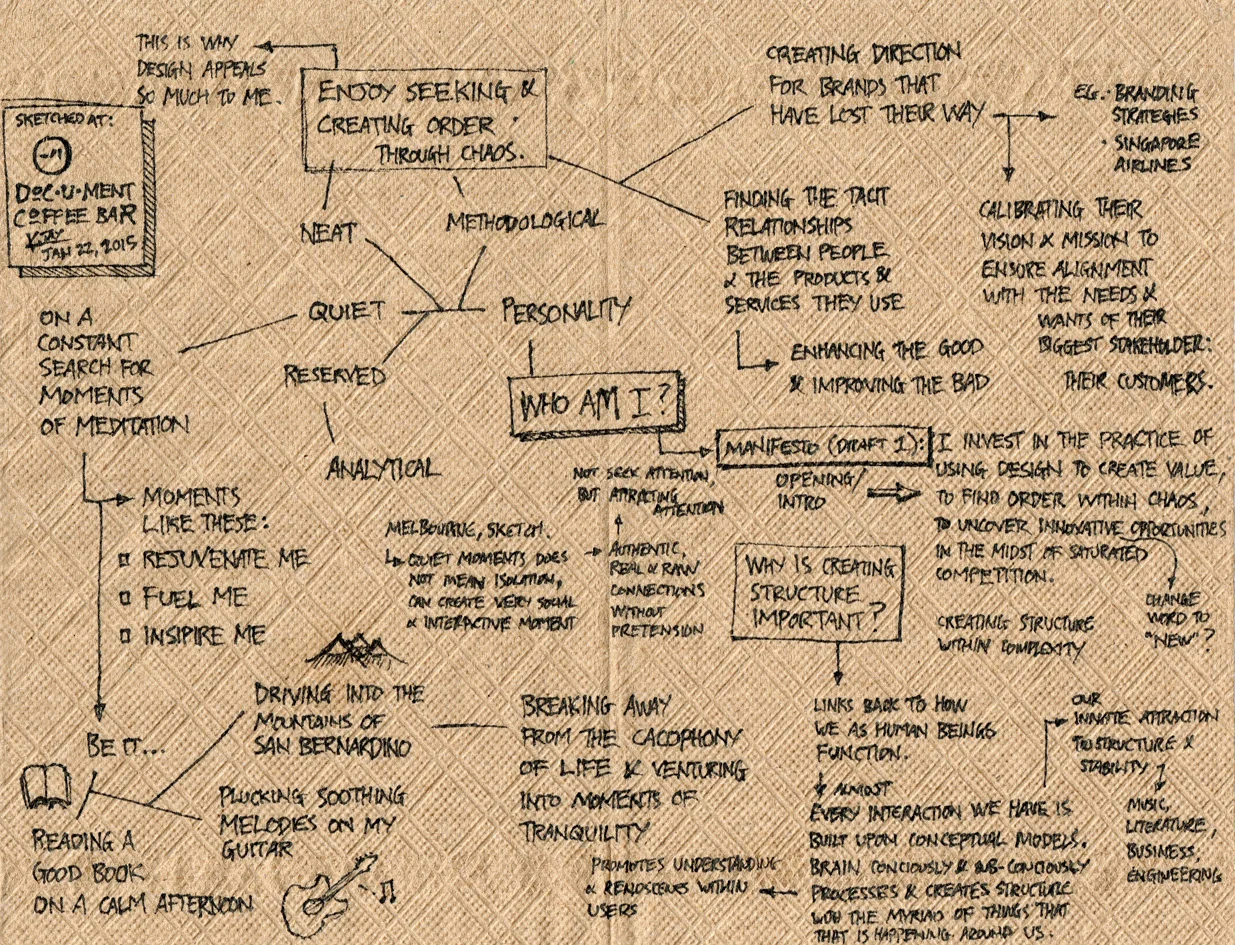 THIS IS WHY
DESIGN APPEALS
SO MUCH TO ME.
SKETCHED AT:
DOC·U·MENT
COFFEE BAR
JAN 22, 2015
ENJOY SEEKING &
CREATING ORDER
THROUGH CHAOS.
CREATING DIRECTION
FOR BRANDS THAT
HAVE LOST THEIR WAY
EG. · BRANDING
STRATEGIES
· SINGAPORE
AIRLINES
NEAT
METHODOLOGICAL
FINDING THE TACIT
RELATIONSHIPS
BETWEEN PEOPLE
& THE PRODUCTS &
SERVICES THEY USE
CALIBRATING THEIR
VISION & MISSION TO
ENSURE ALIGNMENT
WITH THE NEEDS &
WANTS OF THEIR
BIGGEST STAKEHOLDER:
THEIR CUSTOMERS.
QUIET
PERSONALITY
ENHANCING THE GOOD
& IMPROVING THE BAD
ON A
CONSTANT
SEARCH FOR
MOMENTS
OF MEDITATION
RESERVED
ANALYTICAL
WHO AM I?
MANIFESTO (DRAFT 1):
OPENING/
INTRO
I INVEST IN THE PRACTICE OF
USING DESIGN TO CREATE VALUE,
TO FIND ORDER WITHIN CHAOS,
TO UNCOVER INNOVATIVE OPPORTUNITIES
IN THE MIDST OF SATURATED
COMPETITION.
CHANGE
WORD TO
"NEW"?
CREATING STRUCTURE
WITHIN COMPLEXITY
NOT SEEK ATTENTION,
BUT ATTRACTING
ATTENTION
MOMENTS
LIKE THESE:
REJUVENATE ME
FUEL ME
INSIPIRE ME
MELBOURNE, SKETCH.
QUIET MOMENTS DOES
NOT MEAN ISOLATION,
CAN CREATE VERY SOCIAL
& INTERACTIVE MOMENT
AUTHENTIC,
REAL & RAW
CONNECTIONS
WITHOUT
PRETENSION
WHY IS CREATING
STRUCTURE
IMPORTANT?
BE IT...
DRIVING INTO THE
MOUNTAINS OF
SAN BERNARDINO
BREAKING AWAY
FROM THE CACOPHONY
OF LIFE & VENTURING
INTO MOMENTS OF
TRANQUILITY
LINKS BACK TO HOW
WE AS HUMAN BEINGS
FUNCTION.
OUR
INNATE ATTRACTION
TO STRUCTURE &
STABILITY
MUSIC,
LITERATURE,
BUSINESS,
ENGINEERING
PLUCKING SOOTHING
MELODIES ON MY
GUITAR
READING A
GOOD BOOK
ON A CALM AFTERNOON
ALMOST
EVERY INTERACTION WE HAVE IS
BUILT UPON CONCEPTUAL MODELS.
BRAIN CONCIOUSLY & SUB-CONCIOUSLY
PROCESSES & CREATES STRUCTURE
WITH THE MYRIAD OF THINGS THAT
THAT IS HAPPENING AROUND US.
PROMOTES UNDERSTANDING
& WITHIN
USERS